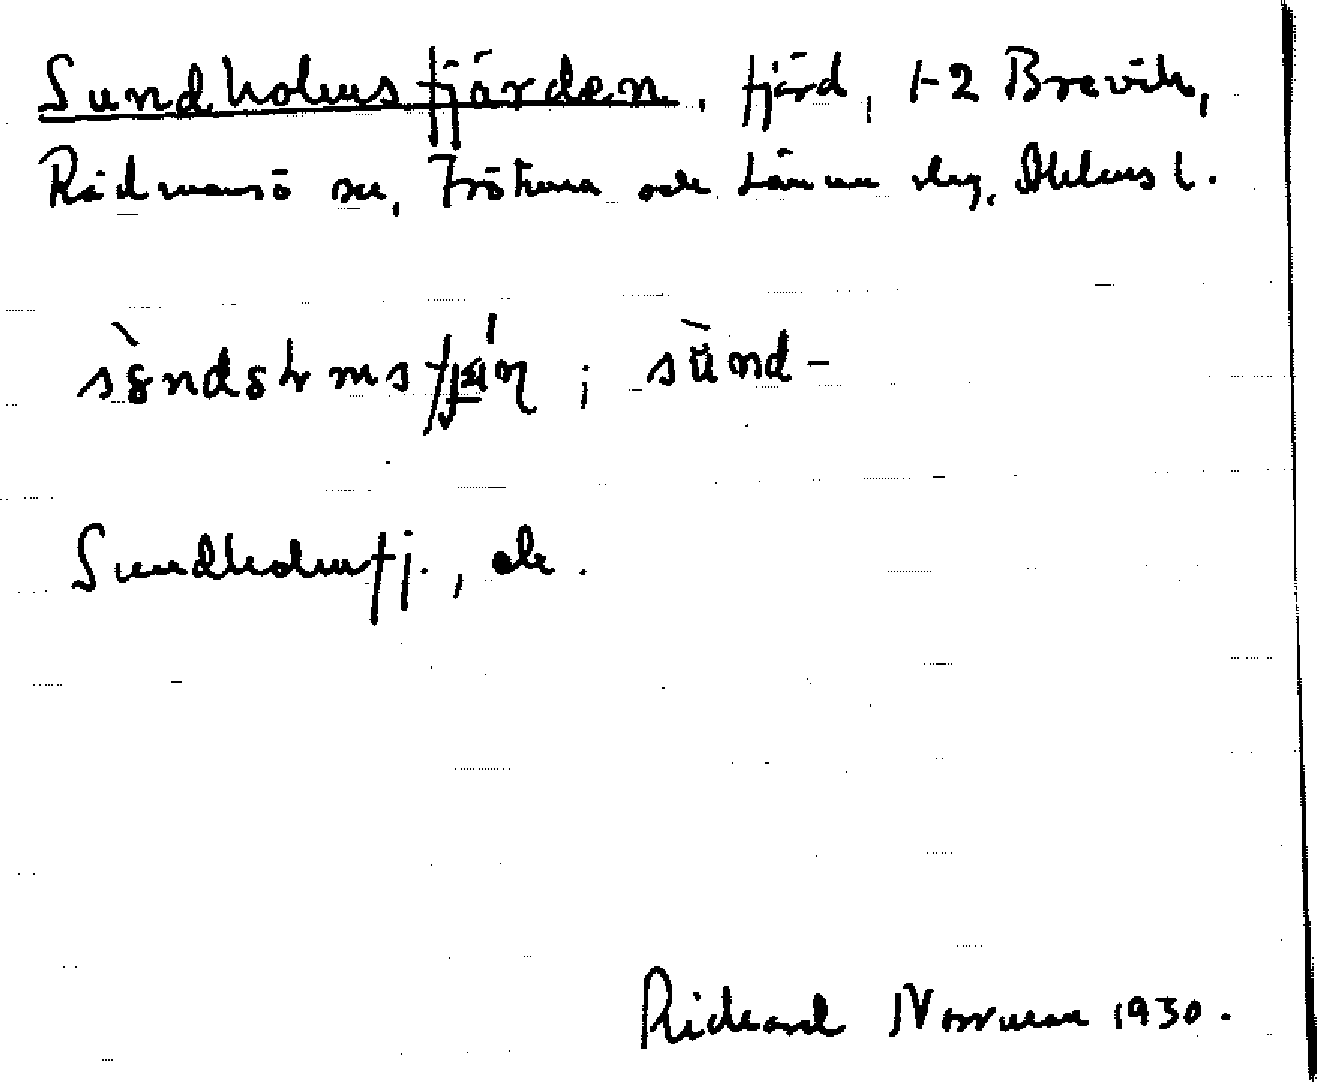 Sundholmsfjärden, fjärd, 1-2 Brevik,
Rådmansö sn, Frötuna och Länna skg, Sthlms l.
sùnd-
Sundholmsfj., ek.
Rickard Norrman 1930.